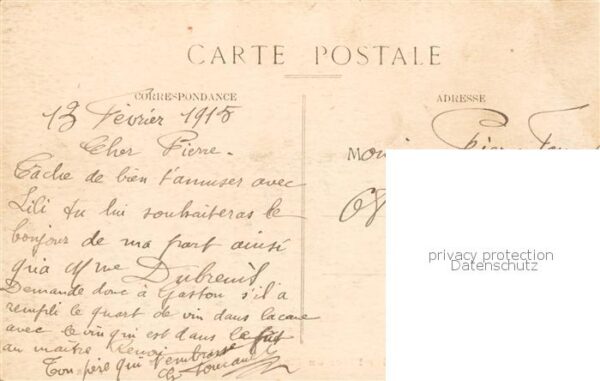 CARTE POSTALE
CORRESPONDANCE
ADRESSE
13 Février 1915
Cher Pierre.
Tâche de bien t'amuser avec
Lili tu lui souhaiteras le
bonjour de ma part ainsi
qu'a Mme Dubreuil
Demande donc à Gaston s'il a
rempli le quart de vin dans la cave
avec le vin qui est dans le fût
au maître
Ton père qui t'embrasse
Pierre
privacy protection
Datenschutz